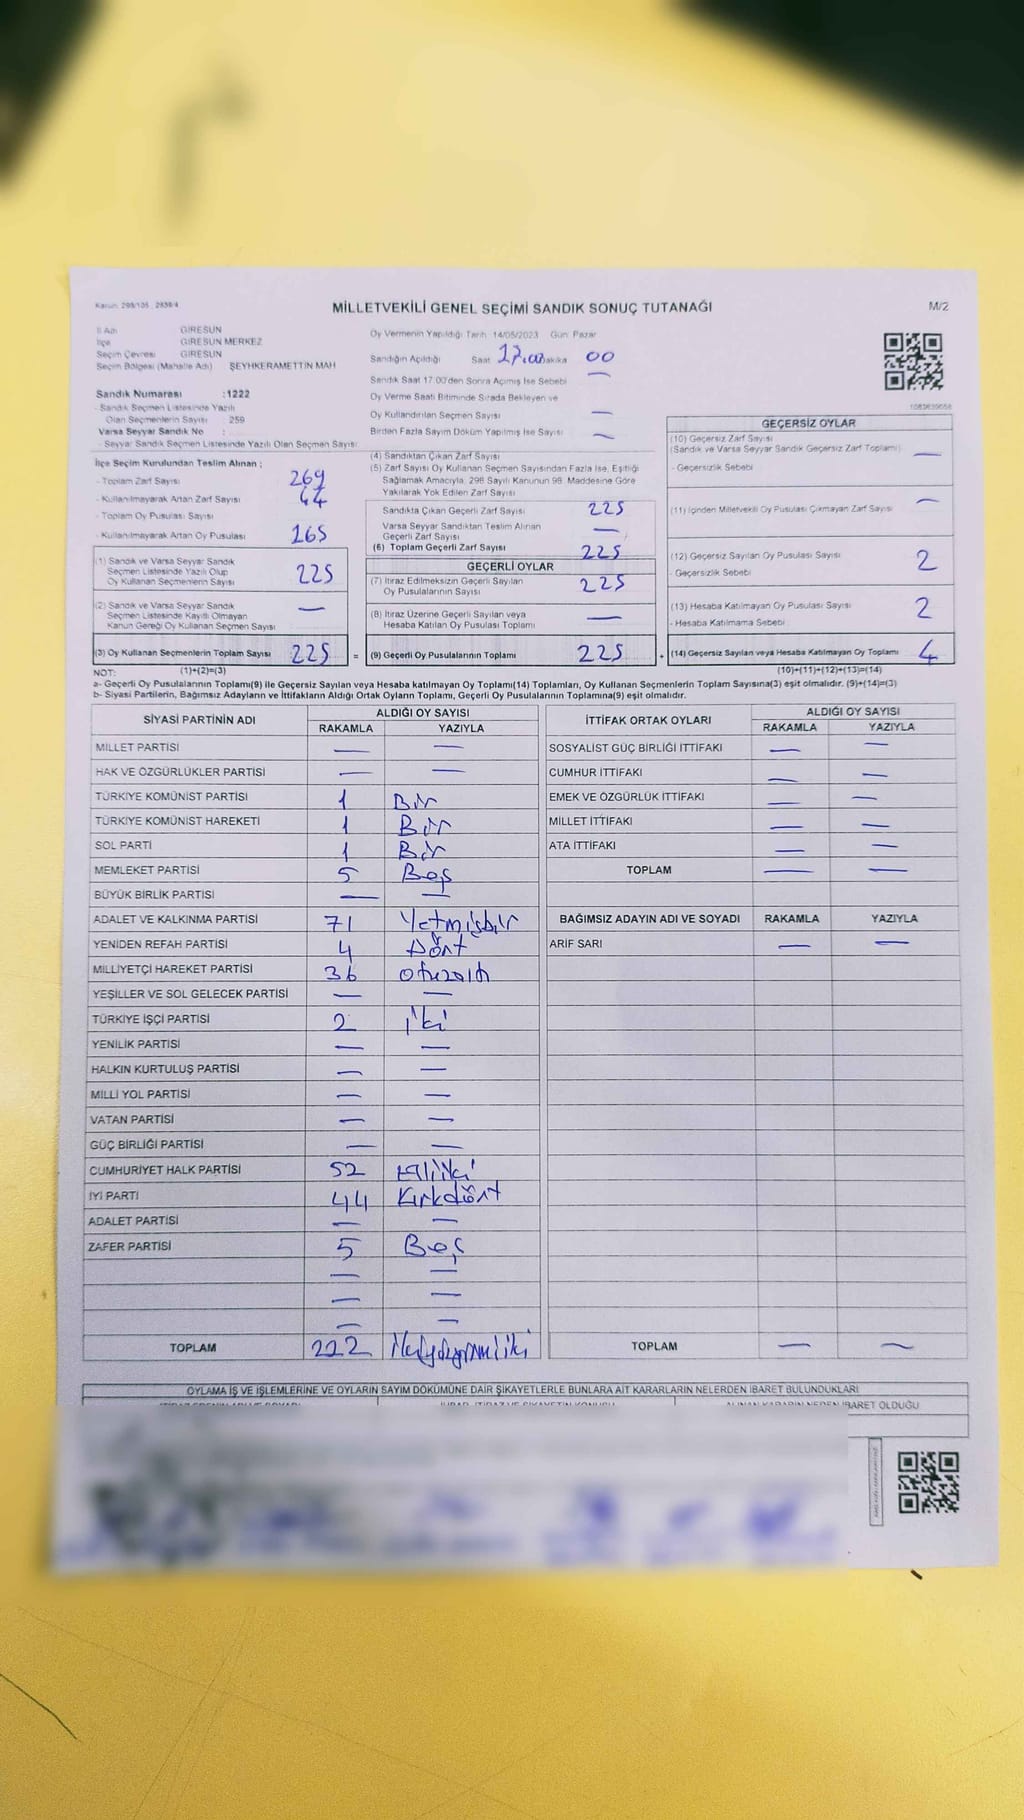 Kanun: 298/105 , 2839/4
MİLLETVEKİLİ GENEL SEÇİMİ SANDIK SONUÇ TUTANAĞI
M/2
İl Adı GİRESUN
İlçe GİRESUN MERKEZ
Seçim Çevresi GİRESUN
Seçim Bölgesi (Mahalle Adı) ŞEYHKERAMETTİN MAH
Sandık Numarası :1222
- Sandık Seçmen Listesinde Yazılı
Olan Seçmenlerin Sayısı 259
Varsa Seyyar Sandık No :
- Seyyar Sandık Seçmen Listesinde Yazılı Olan Seçmen Sayısı:
Oy Vermenin Yapıldığı Tarih: 14/05/2023 Gün: Pazar
Sandığın Açıldığı Saat 17.00 Dakika 00
Sandık Saat 17.00'den Sonra Açımış İse Sebebi —
Oy Verme Saati Bitiminde Sırada Bekleyen ve
Oy Kullandırılan Seçmen Sayısı —
Birden Fazla Sayım Döküm Yapılmış İse Sayısı —
İlçe Seçim Kurulundan Teslim Alınan ;
- Toplam Zarf Sayısı 269
- Kullanılmayarak Artan Zarf Sayısı 44
- Toplam Oy Pusulası Sayısı
- Kullanılmayarak Artan Oy Pusulası 165
(1) Sandık ve Varsa Seyyar Sandık
Seçmen Listesinde Yazılı Olup
Oy Kullanan Seçmenlerin Sayısı 225
(2) Sandık ve Varsa Seyyar Sandık
Seçmen Listesinde Kayıtlı Olmayan
Kanun Gereği Oy Kullanan Seçmen Sayısı —
(3) Oy Kullanan Seçmenlerin Toplam Sayısı 225 =
(4) Sandıktan Çıkan Zarf Sayısı
(5) Zarf Sayısı Oy Kullanan Seçmen Sayısından Fazla İse, Eşitliği
Sağlamak Amacıyla, 298 Sayılı Kanunun 98. Maddesine Göre
Yakılarak Yok Edilen Zarf Sayısı
Sandıkta Çıkan Geçerli Zarf Sayısı 225
Varsa Seyyar Sandıktan Teslim Alınan
Geçerli Zarf Sayısı —
(6) Toplam Geçerli Zarf Sayısı 225
GEÇERLİ OYLAR
(7) İtiraz Edilmeksizin Geçerli Sayılan
Oy Pusulalarının Sayısı 225
(8) İtiraz Üzerine Geçerli Sayılan veya
Hesaba Katılan Oy Pusulası Toplamı —
(9) Geçerli Oy Pusulalarının Toplamı 225 +
GEÇERSİZ OYLAR
(10) Geçersiz Zarf Sayısı
(Sandık ve Varsa Seyyar Sandık Geçersiz Zarf Toplamı) —
- Geçersizlik Sebebi
(11) İçinden Milletvekili Oy Pusulası Çıkmayan Zarf Sayısı —
(12) Geçersiz Sayılan Oy Pusulası Sayısı 2
- Geçersizlik Sebebi
(13) Hesaba Katılmayan Oy Pusulası Sayısı 2
- Hesaba Katılmama Sebebi
(14) Geçersiz Sayılan veya Hesaba Katılmayan Oy Toplamı 4
NOT: (1)+(2)=(3) (10)+(11)+(12)+(13)=(14)
a- Geçerli Oy Pusulalarının Toplamı(9) ile Geçersiz Sayılan veya Hesaba katılmayan Oy Toplamı(14) Toplamları, Oy Kullanan Seçmenlerin Toplam Sayısına(3) eşit olmalıdır. (9)+(14)=(3)
b- Siyasi Partilerin, Bağımsız Adayların ve İttifakların Aldığı Ortak Oyların Toplamı, Geçerli Oy Pusulalarının Toplamına(9) eşit olmalıdır.
SİYASİ PARTİNİN ADI ALDIĞI OY SAYISI
RAKAMLA YAZIYLA
MİLLET PARTİSİ — —
HAK VE ÖZGÜRLÜKLER PARTİSİ — —
TÜRKİYE KOMÜNİST PARTİSİ 1 Bir
TÜRKİYE KOMÜNİST HAREKETİ 1 Bir
SOL PARTİ 1 Bir
MEMLEKET PARTİSİ 5 Beş
BÜYÜK BİRLİK PARTİSİ — —
ADALET VE KALKINMA PARTİSİ 71 Yetmişbir
YENİDEN REFAH PARTİSİ 4 Dört
MİLLİYETÇİ HAREKET PARTİSİ 36 otuzaltı
YEŞİLLER VE SOL GELECEK PARTİSİ — —
TÜRKİYE İŞÇİ PARTİSİ 2 iki
YENİLİK PARTİSİ — —
HALKIN KURTULUŞ PARTİSİ — —
MİLLİ YOL PARTİSİ — —
VATAN PARTİSİ — —
GÜÇ BİRLİĞİ PARTİSİ — —
CUMHURİYET HALK PARTİSİ 52 Elliiki
İYİ PARTİ 44 Kırkdört
ADALET PARTİSİ — —
ZAFER PARTİSİ 5 Beş
— —
— —
— —
TOPLAM 222 ikiyüzyirmiiki
İTTİFAK ORTAK OYLARI ALDIĞI OY SAYISI
RAKAMLA YAZIYLA
SOSYALİST GÜÇ BİRLİĞİ İTTİFAKI — —
CUMHUR İTTİFAKI — —
EMEK VE ÖZGÜRLÜK İTTİFAKI — —
MİLLET İTTİFAKI — —
ATA İTTİFAKI — —
TOPLAM — —
BAĞIMSIZ ADAYIN ADI VE SOYADI RAKAMLA YAZIYLA
ARİF SARI — —
TOPLAM — —
OYLAMA İŞ VE İŞLEMLERİNE VE OYLARIN SAYIM DÖKÜMÜNE DAİR ŞİKAYETLERLE BUNLARA AİT KARARLARIN NELERDEN İBARET BULUNDUKLARI
İBARET OLDUĞU